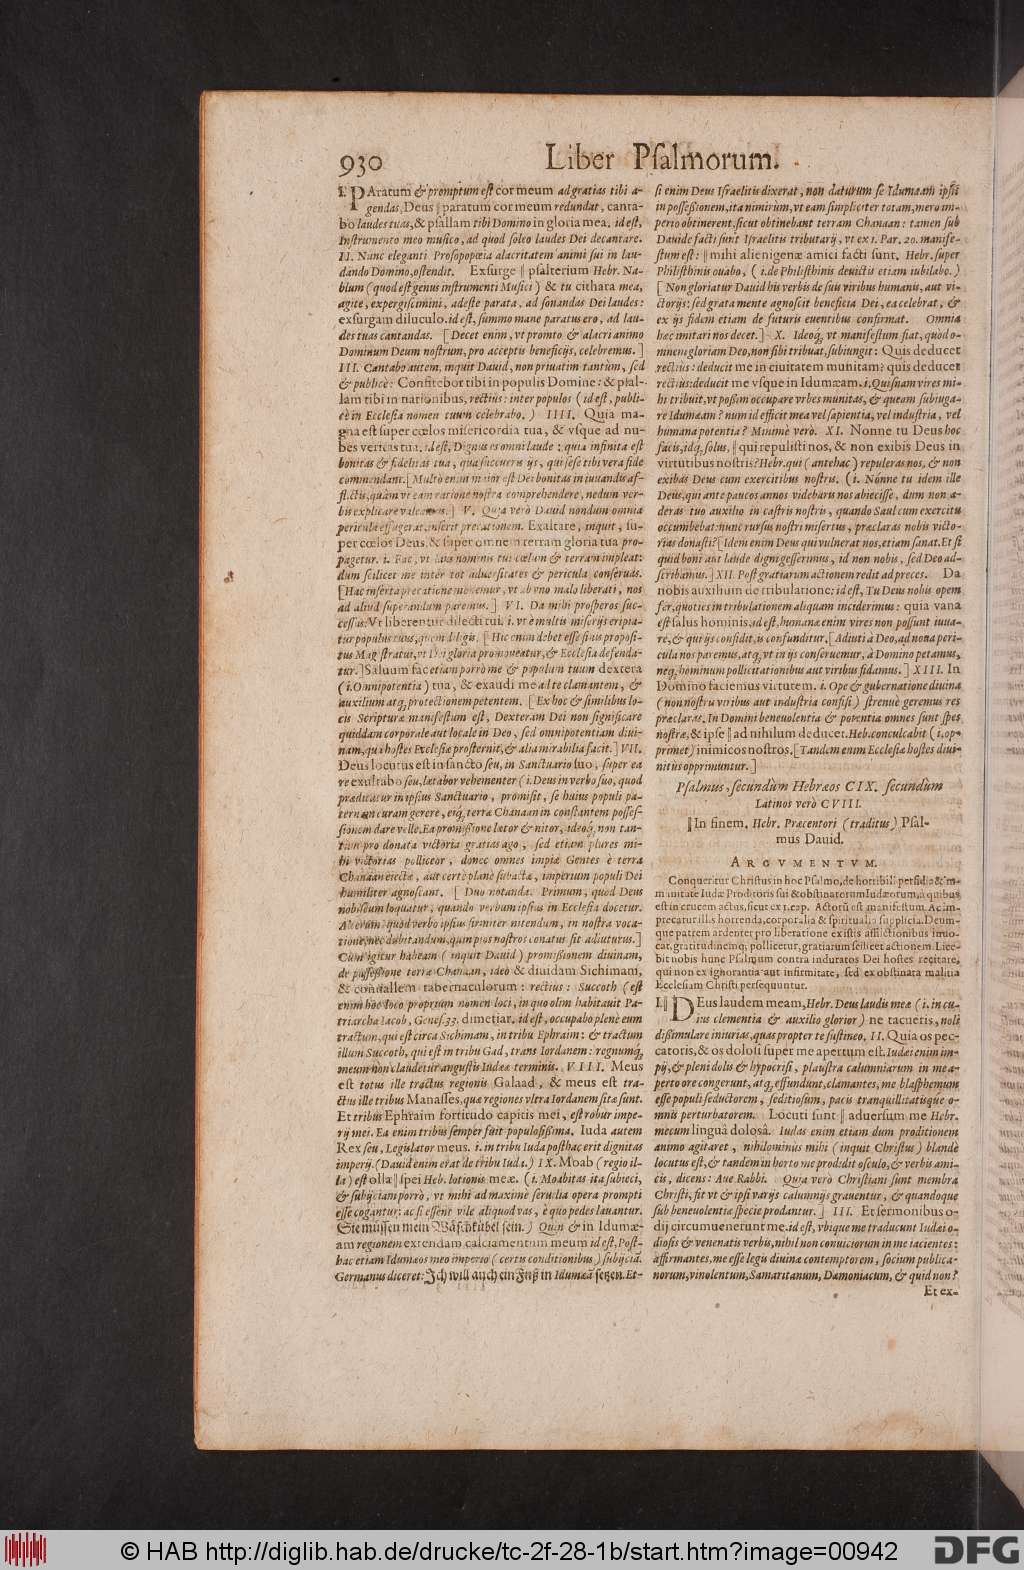 930
Liber Pſalmorum.
I. PAratum & promptum eſt cor meum ad gratias tibi a-
gendas, Deus ‖ paratum cor meum redundat, canta-
bo laudes tuas, & pſallam tibi Domino in gloria mea. id eſt,
Inſtrumento meo muſico, ad quod ſoleo laudes Dei decantare.
II. Nunc eleganti Proſopopœia alacritatem animi ſui in lau-
dando Domino, oſtendit. Exſurge ‖ pſalterium Hebr. Na-
blum (quod eſt genus inſtrumenti Muſici) & tu cithara mea,
agite, expergiſcimini, adeſte parata, ad ſonandas Dei laudes:
exſurgam diluculo. id eſt, ſummo mane paratus ero, ad lau-
des tuas cantandas. [Decet enim, vt promto & alacri animo
Dominum Deum noſtrum, pro acceptis beneficijs, celebremus.]
III. Cantabo autem, inquit Dauid, non priuatim tantùm, ſed
& publicè: Confitebor tibi in populis Domine: & pſal-
lam tibi in nationibus, rectius: inter populos (id eſt, publi-
cè in Eccleſia nomen tuum celebrabo.) IIII. Quia ma-
gna eſt ſuper cœlos miſericordia tua, & vſque ad nu-
bes veritas tua. id eſt, Dignus es omni laude: quia infinita eſt
bonitas & fidelitas tua, qua ſuccurris ijs, qui ſeſe tibi vera fide
commendant. [Multò enim maior eſt Dei bonitas in iuuandis af-
flictis, quàm vt eam ratione noſtra comprehendere, nedum ver-
bis explicare valeamus.] V. Quia verò Dauid nondum omnia
pericula effugerat, inſerit precationem. Exaltare, inquit, ſu-
per cœlos Deus, & ſuper omnem terram gloria tua pro-
pagetur. i. Fac, vt laus nominis tui cœlum & terram impleat:
dum ſcilicet me inter tot aduerſitates & pericula conſeruas.
[Hac inſerta precatione monemur, vt ab vno malo liberati, nos
ad aliud ſuperandum paremus.] VI. Da mihi proſperos ſuc-
ceſſus: Vt liberentur dilecti tui. i. vt è multis miſerijs eripia-
tur populus tuus, quem diligis. [Hic enim debet eſſe finis propoſi-
tus Magiſtratui, vt Dei gloria promoueatur, & Eccleſia defenda-
tur.] Saluum fac etiam porrò me & populum tuum dextera
(i. Omnipotentia) tua, & exaudi me ad te clamantem, &
auxilium atq; protectionem petentem. [Ex hoc & ſimilibus lo-
cis Scripturæ manifeſtum eſt, Dexteram Dei non ſignificare
quiddam corporale aut locale in Deo, ſed omnipotentiam diui-
nam, qua hoſtes Eccleſiæ proſternit, & alia mirabilia facit.] VII.
Deus locutus eſt in ſancto ſeu, in Sanctuario ſuo, ſuper ea
re exultabo ſeu, lætabor vehementer (i. Deus in verbo ſuo, quod
prædicatur in ipſius Sanctuario, promiſit, ſe huius populi pa-
ternam curam gerere, eiq; terræ Chanaan in conſtantem poſſeſ-
ſionem dare velle. Ea promiſſione lætor & nitor, ideoq; non tan-
tùm pro donata victoria gratias ago, ſed etiam plures mi-
hi victorias polliceor, donec omnes impiæ Gentes è terra
Chanaan eiectæ, aut certè planè ſubactæ, imperium populi Dei
humiliter agnoſcant. [Duo notanda. Primum, quod Deus
nobiſcum loquatur, quando verbum ipſius in Eccleſia docetur.
Alterum: quod verbo ipſius firmiter nitendum, in noſtra voca-
tione, nec dubitandum, quin pios noſtros conatus ſit adiuturus.]
Cùm igitur habeam (inquit Dauid) promiſſionem diuinam,
de poſſeſſione terræ Chanaan, ideò & diuidam Sichimam,
& conuallem tabernaculorum: rectius: Succoth (eſt
enim hoc loco proprium nomen loci, in quo olim habitauit Pa-
triarcha Iacob, Geneſ. 33. dimetiar. id eſt, occupabo plenè eum
tractum, qui eſt circa Sichimam, in tribu Ephraim: & tractum
illum Succoth, qui eſt in tribu Gad, trans Iordanem: regnumq;
meum non claudetur anguſtis Iudææ terminis. VIII. Meus
eſt totus ille tractus regionis Galaad, & meus eſt tra-
ctus ille tribus Manaſſes, quæ regiones vltra Iordanem ſitæ ſunt.
Et tribus Ephraim fortitudo capitis mei, eſt robur impe-
rij mei. Ea enim tribus ſemper fuit populoſiſſima. Iuda autem
Rex ſeu, Legislator meus. i. in tribu Iuda poſthac erit dignitas
imperij. (Dauid enim erat de tribu Iuda.) IX. Moab (regio il-
la) eſt olla ‖ ſpei Hebr. lotionis meæ. (i. Moabitas ita ſubieci,
& ſubijciam porrò, vt mihi ad maximè ſeruilia opera prompti
eſſe cogantur: ac ſi eſſent vile aliquod vas, è quo pedes lauantur.
Sie müſſen mein Wäſchkübel ſein.) Quin & in Idumæ-
am regionem extendam calciamentum meum id eſt, Poſt-
hac etiam Idumæos meo imperio (certis conditionibus) ſubijciā.
Germanus diceret: Ich will auch ein Fuß in Idumæā ſetzen. Et-
ſi enim Deus Iſraelitis dixerat, non daturum ſe Idumæam ipſis
in poſſeßionem, ita nimirùm, vt eam ſimpliciter totam, mero im-
perio obtinerent, ſicut obtinebant terram Chanaan: tamen ſub
Dauide facti ſunt Iſraelitis tributarij, vt ex 1. Par. 20. manife-
ſtum eſt: ‖ mihi alienigenæ amici facti ſunt. Hebr. ſuper
Philiſthinis ouabo, (i. de Philiſthinis deuictis etiam iubilabo.)
[Non gloriatur Dauid his verbis de ſuis viribus humanis, aut vi-
ctorijs: ſed grata mente agnoſcit beneficia Dei, ea celebrat, &
ex ijs fidem etiam de futuris euentibus confirmat. Omnia
hæc imitari nos decet.] X. Ideoq; vt manifeſtum fiat, quòd o-
mnem gloriam Deo, non ſibi tribuat, ſubiungit: Quis deducet
rectius: deducit me in ciuitatem munitam? quis deducet
rectius: deducit me vſque in Idumæam. i. Quiſnam vires mi-
hi tribuit, vt poßim occupare vrbes munitas, & queam ſubiuga-
re Idumæam? num id efficit mea vel ſapientia, vel induſtria, vel
humana potentia? Minimè verò. XI. Nonne tu Deus hoc
facis, idq; ſolus, ‖ qui repuliſti nos, & non exibis Deus in
virtutibus noſtris? Hebr. qui (antehac) repuleras nos, & non
exibas Deus cum exercitibus noſtris. (i. Nónne tu idem ille
Deus, qui ante paucos annos videbaris nos abieciſſe, dum non a-
deras tuo auxilio in caſtris noſtris, quando Saul cum exercitu
occumbebat: nunc rurſus noſtri miſertus, præclaras nobis victo-
rias donaſti? [Idem enim Deus qui vulnerat nos, etiam ſanat. Et ſi
quid boni aut laude digni geſſerimus, id non nobis, ſed Deo ad-
ſcribamus.] XII. Poſt gratiarum actionem redit ad preces. Da
nobis auxilium de tribulatione: id eſt, Tu Deus nobis opem
fer, quoties in tribulationem aliquam inciderimus: quia vana
eſt ſalus hominis, id eſt, humanæ enim vires non poſſunt iuua-
re, & qui ijs confidit, is confunditur. [Adiuti à Deo, ad noua peri-
cula nos paremus, atq; vt in ijs conſeruemur, à Domino petamus,
neq; hominum pollicitationibus aut viribus fidamus.] XIII. In
Domino faciemus virtutem. i. Ope & gubernatione diuina
(non noſtris viribus aut induſtria confiſi) ſtrenuè geremus res
præclaras. In Domini beneuolentia & potentia omnes ſunt ſpes
noſtræ, & ipſe ‖ ad nihilum deducet. Heb. conculcabit (i. op-
primet) inimicos noſtros. [Tandem enim Eccleſiæ hoſtes diui-
nitùs opprimuntur.]
Pſalmus, ſecundùm Hebræos CIX. ſecundùm
Latinos verò CVIII.
‖ In finem. Hebr. Præcentori (traditus) Pſal-
mus Dauid.
ARGVMENTVM.
Conqueritur Chriſtus in hoc Pſalmo, de horribili perfidia & im-
manitate Iudæ Proditoris ſui & obſtinatorum Iudæorum, à quibus
eſt in crucem actus, ſicut ex 1. cap. Actorū eſt manifeſtum. Ac im-
precatur illis horrenda, corporalia & ſpiritualia ſupplicia. Deum-
que patrem ardenter pro liberatione ex iſtis afflictionibus inuo-
cat, gratitudinemq; pollicetur, gratiarum ſcilicet actionem. Lice-
bit nobis hunc Pſalmum contra induratos Dei hoſtes recitare,
qui non ex ignorantia aut infirmitate, ſed ex obſtinata malitia
Eccleſiam Chriſti perſequuntur.
I. ‖ DEus laudem meam, Hebr. Deus laudis meæ (i. in cu-
ius clementia & auxilio glorior) ne tacueris, noli
diſſimulare iniurias, quas propter te ſuſtineo. II. Quia os pec-
catoris, & os doloſi ſuper me apertum eſt. Iudæi enim im-
pij, & pleni dolis & hypocriſi, plauſtra calumniarum in me a-
perto ore congerunt, atq; effundunt, clamantes, me blaſphemum
eſſe populi ſeductorem, ſeditioſum, pacis tranquillitatisque o-
mnis perturbatorem. Locuti ſunt ‖ aduerſum me Hebr.
mecum linguâ doloſâ. Iudas enim etiam dum proditionem
animo agitaret, nihilominùs mihi (inquit Chriſtus) blandè
locutus eſt, & tandem in horto me prodidit oſculo, & verbis ami-
cis, dicens: Aue Rabbi. Quia verò Chriſtiani ſunt membra
Chriſti, fit vt & ipſi varijs calumnijs grauentur, & quandoque
ſub beneuolentiæ ſpecie prodantur.] III. Et ſermonibus o-
dij circumuenerunt me. id eſt, vbique me traducunt Iudæi o-
dioſis & venenatis verbis, nihil non conuiciorum in me iacientes:
affirmantes, me eſſe legis diuinæ contemptorem, ſocium publica-
norum, vinolentum, Samaritanum, Dæmoniacum, & quid non?
Et ex-
© HAB http://diglib.hab.de/drucke/tc-2f-28-1b/start.htm?image=00942
DFG